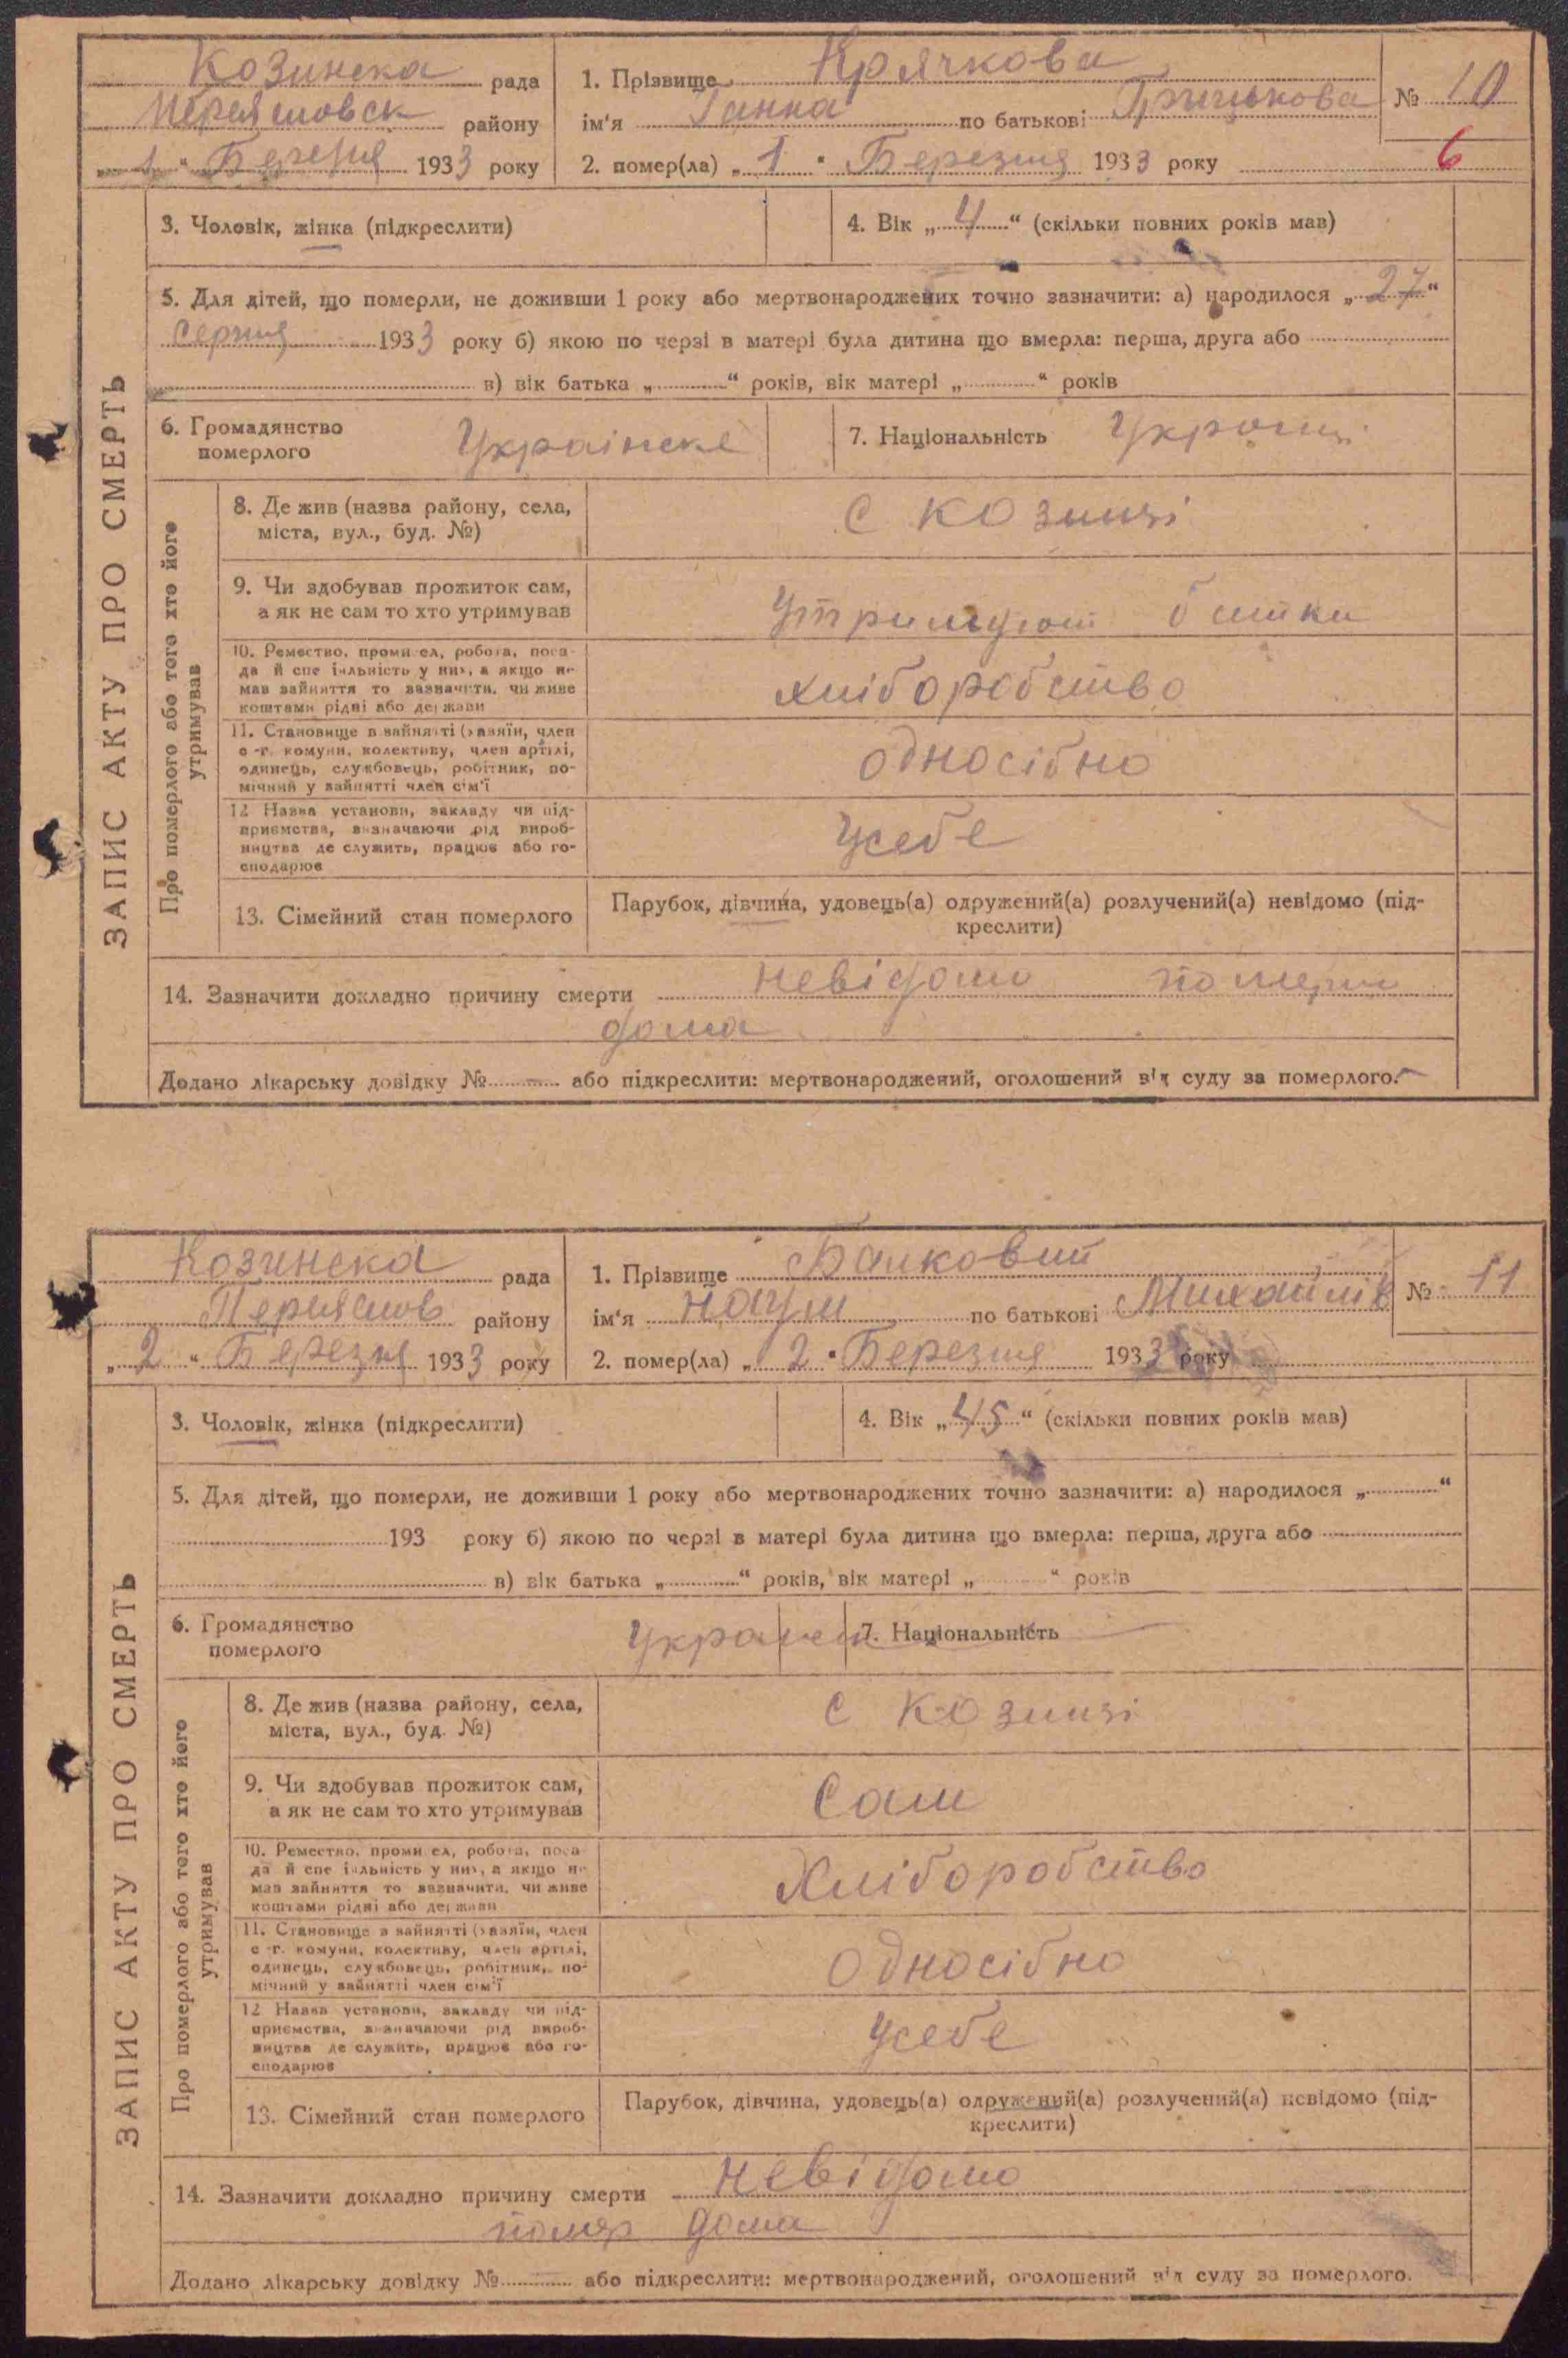 Козинска рада
району
1 Березня 1933 року
1. Прізвище Крячкова
ім'я Ганна по батькові Грицькова
2. помер(ла) „ 1 " Березня 1933 року
№ 10
6
3. Чоловік, жінка (підкреслити)
4. Вік „ 4 " (скільки повних років мав)
5. Для дітей, що померли, не доживши 1 року або мертвонароджених точно зазначити: а) народилося „ 27 "
1933 року б) якою по черзі в матері була дитина що вмерла: перша, друга або
в) вік батька „ " років, вік матері „ " років
6. Громадянство
померлого
Украінске
7. Національність
ЗАПИС АКТУ ПРО СМЕРТЬ
Про померлого або того хто його
утримував
8. Де жив (назва району, села,
міста, вул., буд. №)
с Козинзі
9. Чи здобував прожиток сам,
а як не сам то хто утримував
Утримують батки
10. Ремество, промисел, робота, поса-
да й спеціяльність у них, а якщо не
мав зайняття то зазначити, чи живе
коштами рідні або держави
хліборобство
11. Становище в зайнятті (хазяїн, член
с.-г. комуни, колективу, член артілі,
одинець, службовець, робітник, по-
мічний у зайнятті член сім'ї
односібно
12 Назва установи, закладу чи під-
приємства, визначаючи рід вироб-
ництва де служить, працює або го-
сподарює
Усебе
13. Сімейний стан померлого
Парубок, дівчина, удовець(а) одружений(а) розлучений(а) невідомо (під-
креслити)
14. Зазначити докладно причину смерти невідомо померла
дома
Додано лікарську довідку № — або підкреслити: мертвонароджений, оголошений від суду за померлого.
Козинска рада
району
„ 2 " Березня 1933 року
1. Прізвище Балковий
ім'я Наум по батькові Михайлів
2. помер(ла) „ 2 " Березня 1933 року
№ 11
3. Чоловік, жінка (підкреслити)
4. Вік „ 45 " (скільки повних років мав)
5. Для дітей, що померли, не доживши 1 року або мертвонароджених точно зазначити: а) народилося „ "
193 року б) якою по черзі в матері була дитина що вмерла: перша, друга або
в) вік батька „ " років, вік матері „ " років
6. Громадянство
померлого
7. Національність
ЗАПИС АКТУ ПРО СМЕРТЬ
Про померлого або того хто його
утримував
8. Де жив (назва району, села,
міста, вул., буд. №)
с Козинзі
9. Чи здобував прожиток сам,
а як не сам то хто утримував
Сам
10. Ремество, промисел, робота, поса-
да й спеціяльність у них, а якщо не
мав зайняття то зазначити, чи живе
коштами рідні або держави
Хліборобство
11. Становище в зайнятті (хазяїн, член
с.-г. комуни, колективу, член артілі,
одинець, службовець, робітник, по-
мічний у зайнятті член сім'ї
односібно
12 Назва установи, закладу чи під-
приємства, визначаючи рід вироб-
ництва де служить, працює або го-
сподарює
Усебе
13. Сімейний стан померлого
Парубок, дівчина, удовець(а) одружений(а) розлучений(а) невідомо (під-
креслити)
14. Зазначити докладно причину смерти Невідомо
помер дома
Додано лікарську довідку № — або підкреслити: мертвонароджений, оголошений від суду за померлого.